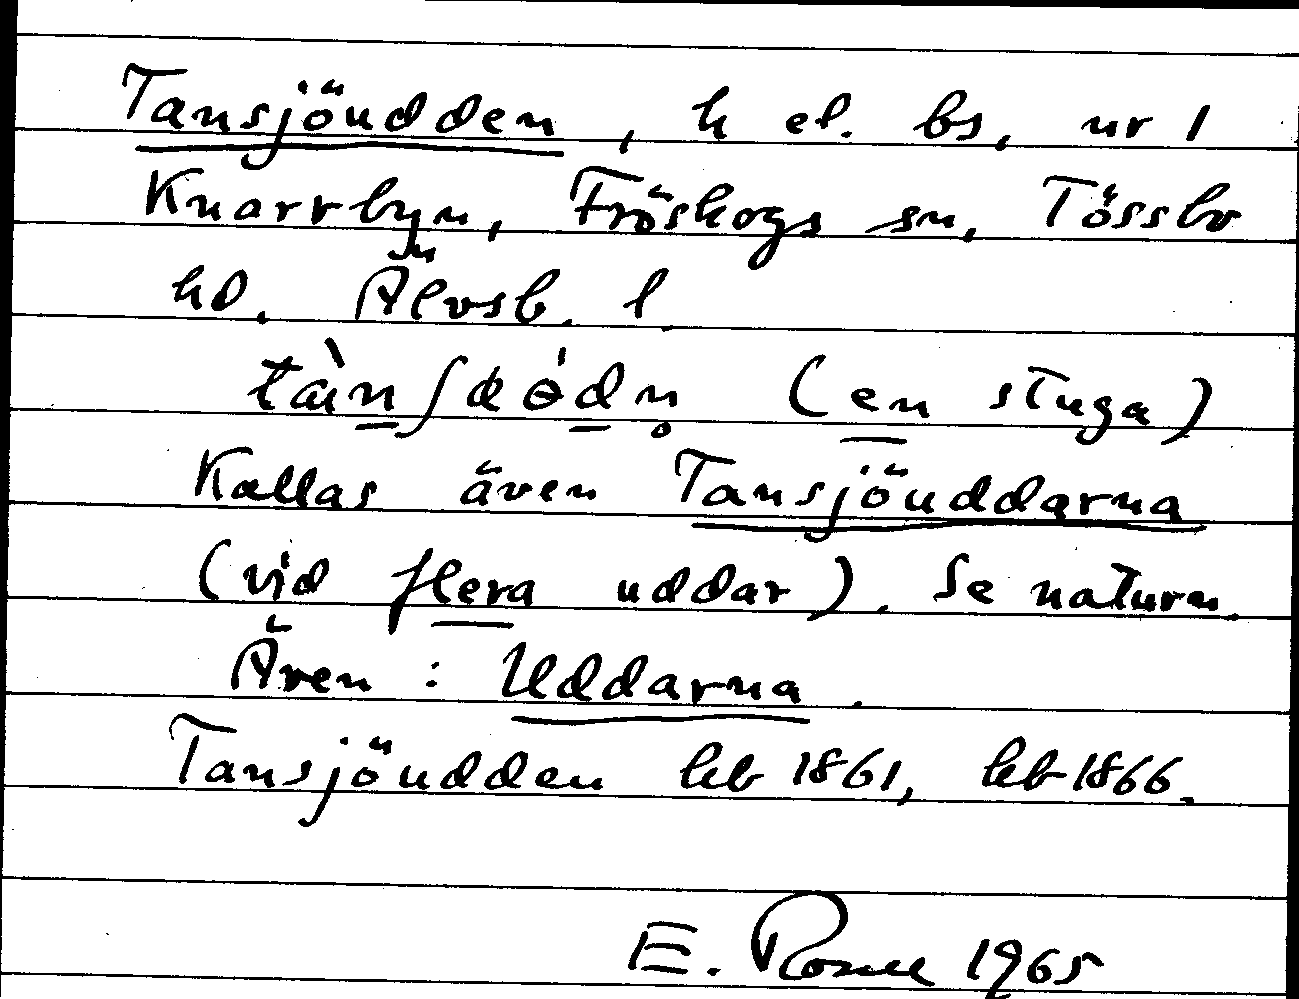 Tansjöudden, h el. bs, nr 1
Knarrbyn, Fröskogs sn, Tössbo
hd. Älvsb. l.
(en stuga)
Kallas även Tansjöuddarna
(vid flera uddar). Se naturn.
Även: Uddarna.
Tansjöudden hb 1861, hb 1866.
E. 1965